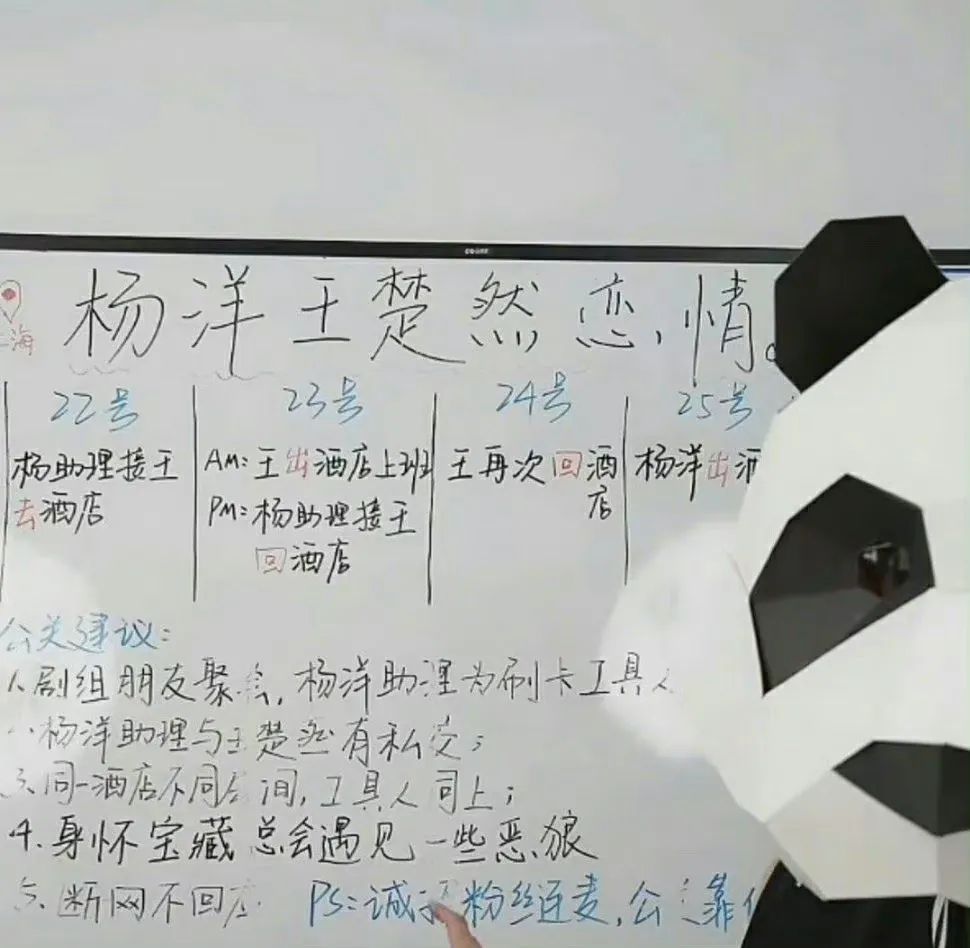 杨洋王楚然恋情
海
22号
杨助理接王
去酒店
23号
AM:王出酒店上班
PM:杨助理接王
回酒店
24号
王再次回酒
店
25号
杨洋出酒
公关建议:
1.剧组朋友聚会,杨洋助理为刷卡工具人
杨洋助理与王楚然有私交;
3.同一酒店不同 间,工具人同上;
4.身怀宝藏总会遇见一些恶狼
5.断网不回应
PS:诚 粉丝连麦,公 靠